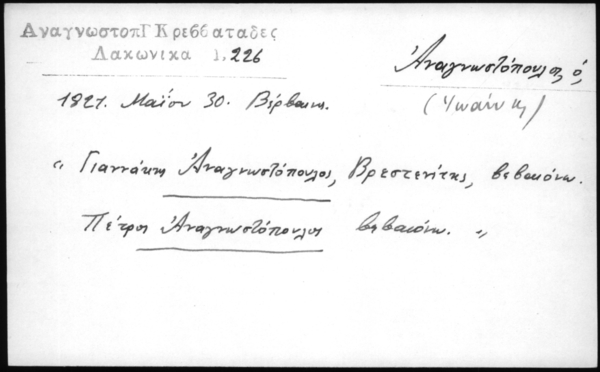 ΑναγνωστοπΓ Κρεββαταδες
Λακωνικα 1, 226
Ἀναγνωστόπουλος, ὁ,
(Ἰωάννης)
1821. Μαΐου 30. Βέρβαινα.
" Γιαννάκης Ἀναγνωστόπουλος, Βρεστενίτης, βεβαιόνω.
Πέτρος Ἀναγνωστόπουλος βεβαιόνω. "